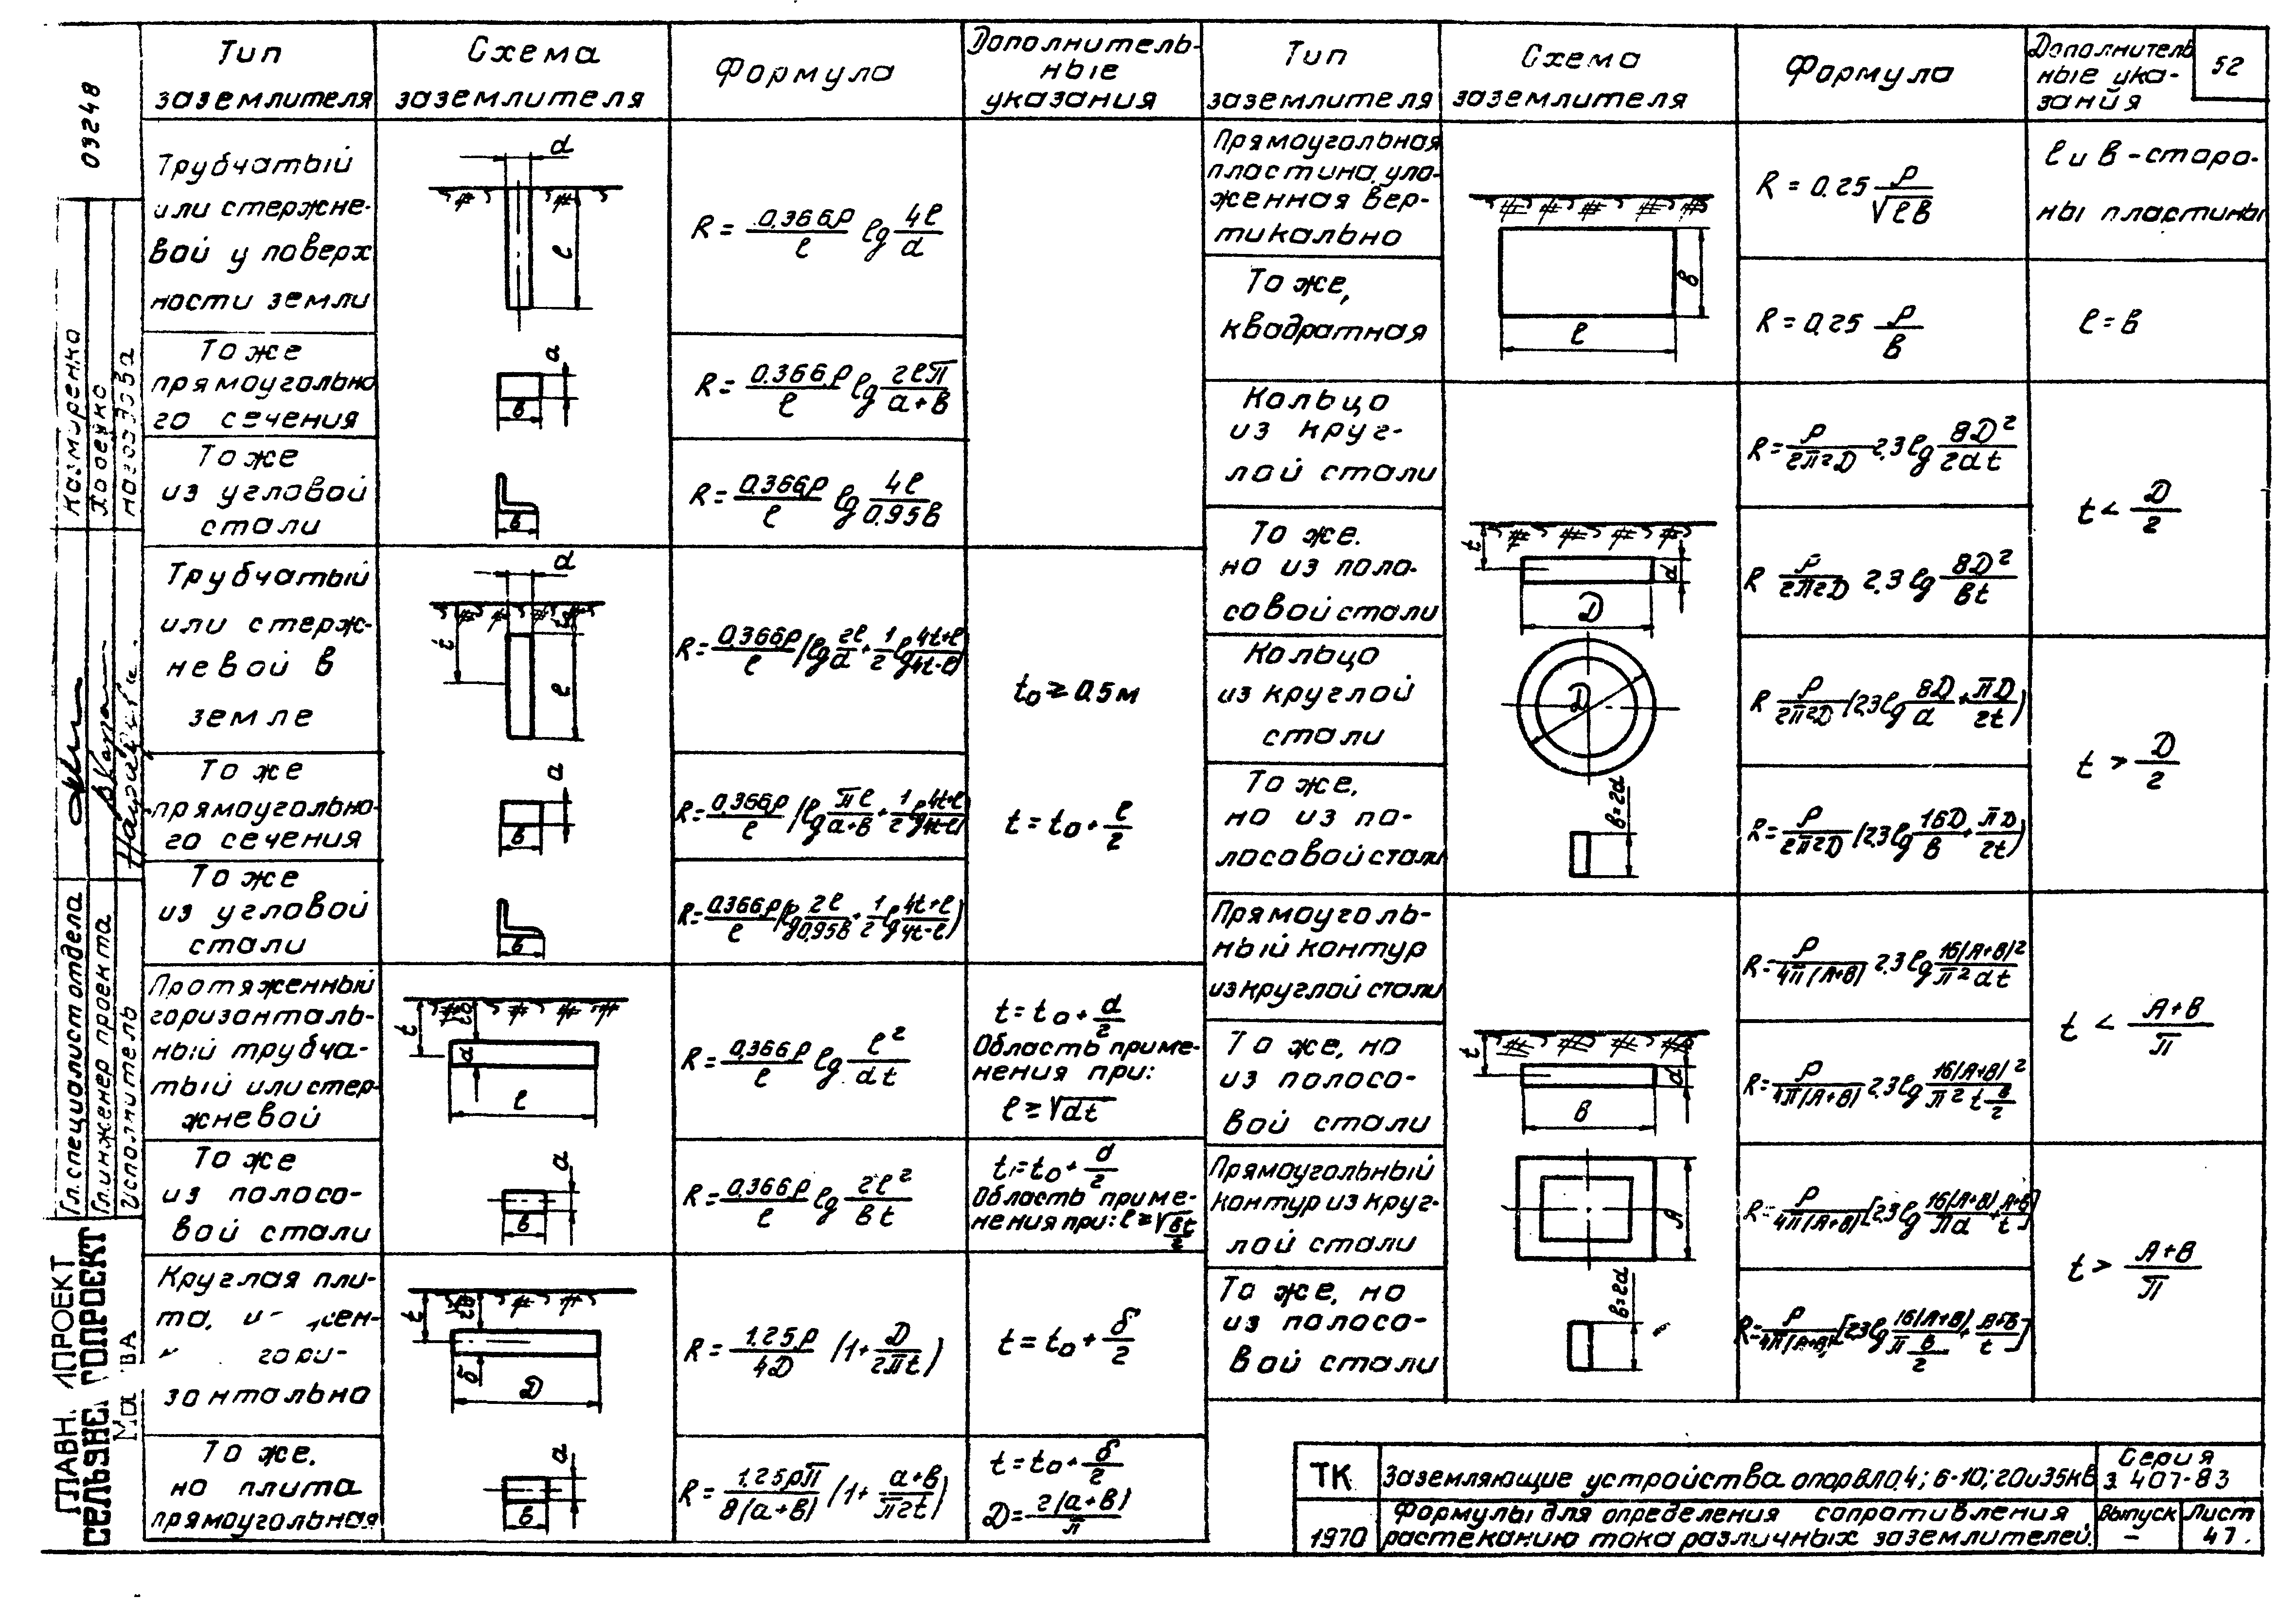 52
03248
Тип
заземлителя
Схема
заземлителя
Формула
Дополнитель-
ные
указания
Трубчатый
или стержне-
вой у поверх
ности земли
d
l
R = 0.366ρ/l lg 4l/d
То же
прямоугольно
го сечения
a
в
R = 0.366ρ/l lg 2lπ/a+в
То же
из угловой
стали
в
R = 0.366ρ/l lg 4l/0.95в
Трубчатый
или стерж-
невой в
земле
d
t
l
R = 0.366ρ/l (lg 2l/d + 1/2 lg 4t+l/4t-l)
t₀ ≥ 0.5м
То же
прямоугольно-
го сечения
a
в
R = 0.366ρ/l (lg πl/a+в + 1/2 lg 4t+l/4t-l)
t = t₀ + l/2
То же
из угловой
стали
в
R = 0.366ρ/l (lg 2l/0.95в + 1/2 lg 4t+l/4t-l)
Протяженный
горизонталь-
ный трубча-
тый или стер-
жневой
t
d
l
R = 0.366ρ/l lg l²/dt
t = t₀ + d/2
Область приме-
нения при:
l ≥ √dt
То же
из полосо-
вой стали
a
в
R = 0.366ρ/l lg 2l²/вt
t = t₀ +
Область приме-
нения при: l ≥ √вt/2
Круглая пли-
та,
гори-
зонтально
t
δ
D
R = 1.25ρ/4D (1 + D/2πt)
t = t₀ + δ/2
То же,
но плита
прямоугольная
a
в
R = 1.25ρπ/8(a+в) (1 + a+в/π2t)
t = t₀ + δ/2
D = 2(a+в)/π
Тип
заземлителя
Схема
заземлителя
Формула
Дополнитель
ные ука-
зания
Прямоугольная
пластина, уло-
женная вер-
тикально
R = 0.25 ρ/√lв
l и в - сторо-
ны пластины
То же,
квадратная
в
l
R = 0.25 ρ/в
l = в
Кольцо
из круг-
лой стали
R = ρ/2π2D 2.3 lg 8D²/2dt
t < D/2
То же.
но из поло-
совой стали
t
d
D
R ρ/2π2D 2.3 lg 8D²/вt
Кольцо
из круглой
стали
D
R ρ/2π2D (2.3 lg 8D/d + πD/2t)
t > D/2
То же,
но из по-
лосовой стали
в=2d
R = ρ/2π2D (2.3 lg 16D/в + πD/2t)
Прямоуголь-
ный контур
из круглой стали
R = ρ/4π(A+B) 2.3 lg 16(A+B)²/π²dt
t < A+B/π
То же, но
из полосо-
вой стали
t
d
B
R = ρ/4π(A+B) 2.3 lg 16(A+B)²/π²t в/2
Прямоугольный
контур из круг-
лой стали
A
R = ρ/4π(A+B) [2.3 lg 16(A+B)/πd + A+B/t]
t > A+B/π
То же, но
из полосо-
вой стали
в=2d
R = ρ/4π(A+B) [2.3 lg 16(A+B)/π в/2 + A+B/t]
Казмиренко
Гл. специалист отдела
Гл. инженер проекта
Исполнитель
СЕЛЬЭНЕ
ТК
Заземляющие устройства опор ВЛ 0.4; 6-10; 20 и 35 кВ
Серия
3.407-83
1970
Формулы для определения сопротивления
растеканию тока различных заземлителей.
Выпуск
–
Лист
47.